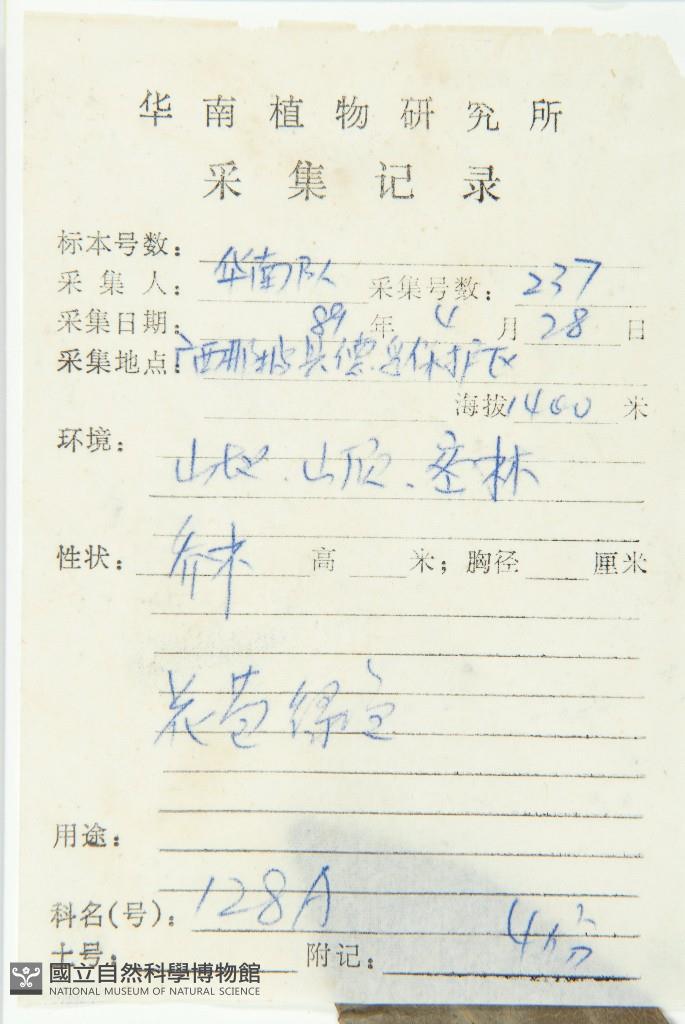 华南植物研究所
采集记录
标本号数：
采集人：华南队 采集号数：237
采集日期：89年4月28日
采集地点：广西那坡县德孚保护区
海拔1400米
环境：
山坡、山顶、密林
性状：乔木 高 米；胸径 厘米
花苞绿色
用途：
科名(号)：128A
土号： 附记：4份
國立自然科學博物館
NATIONAL MUSEUM OF NATURAL SCIENCE